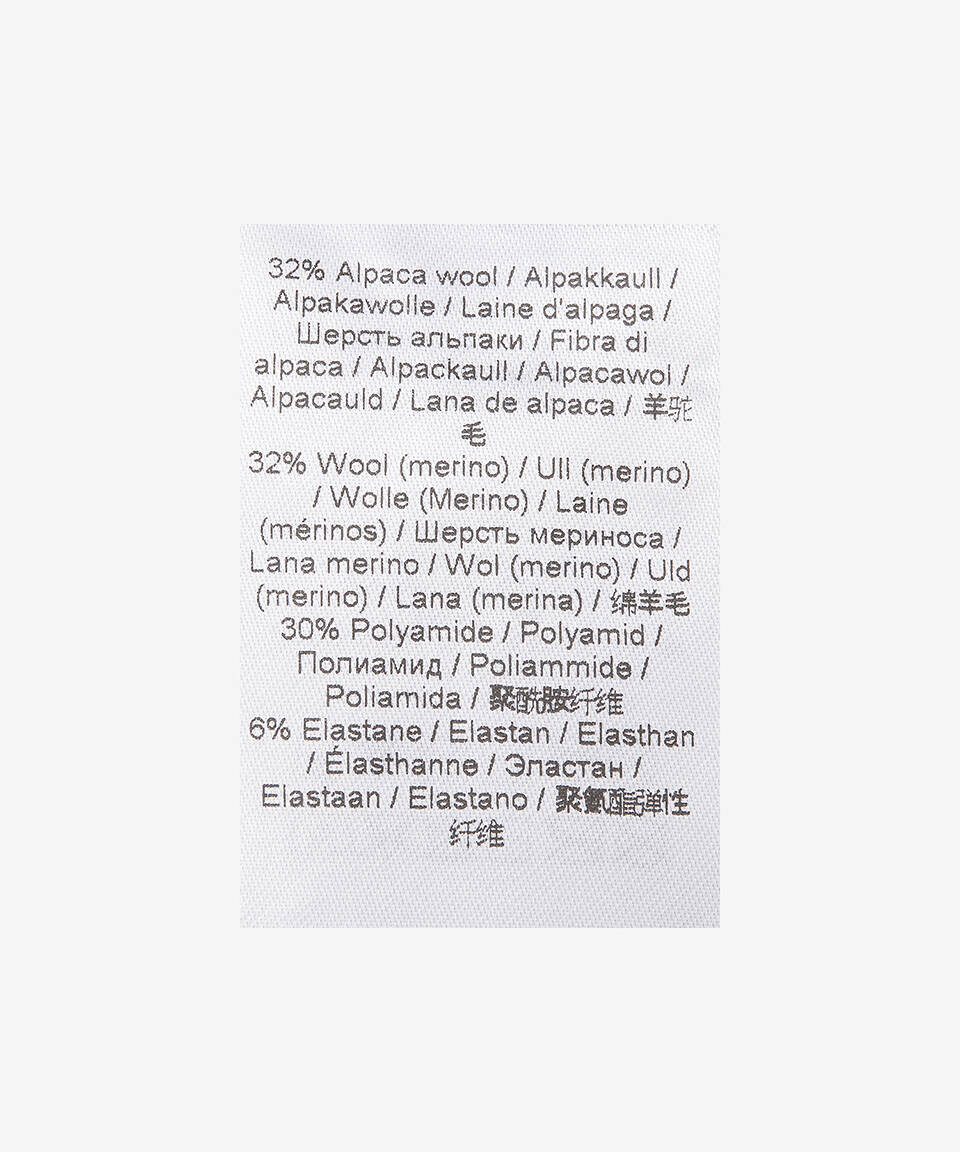 32% Alpaca wool / Alpakkaull /
Alpakawolle / Laine d'alpaga /
Шерсть альпаки / Fibra di
alpaca / Alpackaull / Alpacawol /
Alpacauld / Lana de alpaca / 羊驼
毛
32% Wool (merino) / Ull (merino)
/ Wolle (Merino) / Laine
(mérinos) / Шерсть мериноса /
Lana merino / Wol (merino) / Uld
(merino) / Lana (merina) / 绵羊毛
30% Polyamide / Polyamid /
Полиамид / Poliammide /
Poliamida / 聚酰胺纤维
6% Elastane / Elastan / Elasthan
/ Élasthanne / Эластан /
Elastaan / Elastano / 聚氰酯弹性
纤维